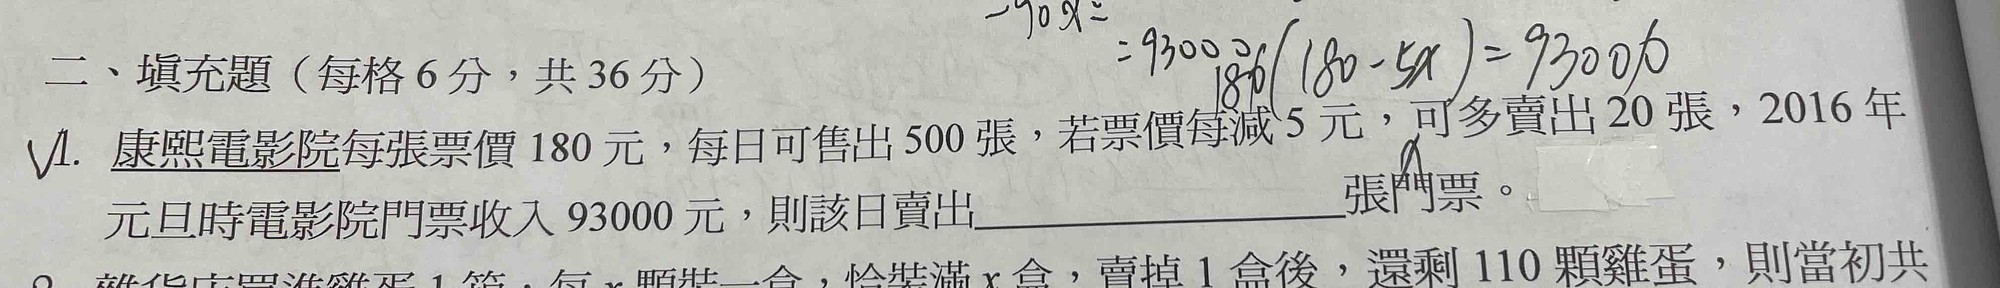 -90x=
=93000
180(180-5x)=93000
二、填充題（每格 6 分，共 36 分）
1. 康熙電影院每張票價 180 元，每日可售出 500 張，若票價每減 5 元，可多賣出 20 張，2016 年
元旦時電影院門票收入 93000 元，則該日賣出 張門票。
雜貨店買進雞蛋 1 箱，每 x 顆裝一盒，恰裝滿 x 盒，賣掉 1 盒後，還剩 110 顆雞蛋，則當初共